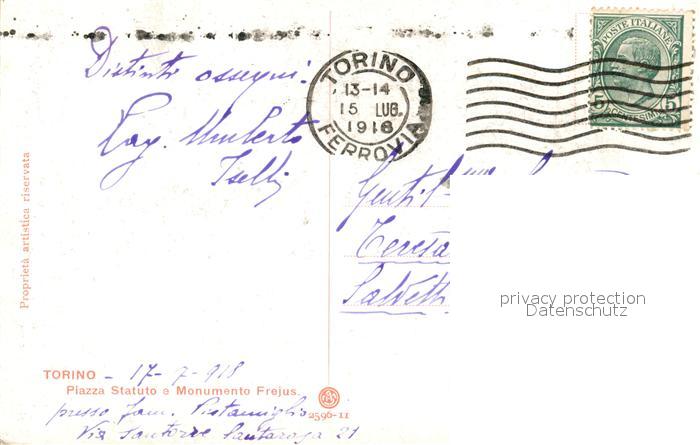 Distinti ossequi.
Rag. Umberto
Iselli
TORINO
13-14
15 LUG.
1918
FERROVIA
POSTE ITALIANE
5 5
CENTESIMI
Gentil
Teresa
Salvetti
privacy protection
Datenschutz
Proprietà artistica riservata
TORINO - 17-7-918
Piazza Statuto e Monumento Frejus.
2596-11
presso fam. Pistamiglio
Via Santorre Santarosa 21